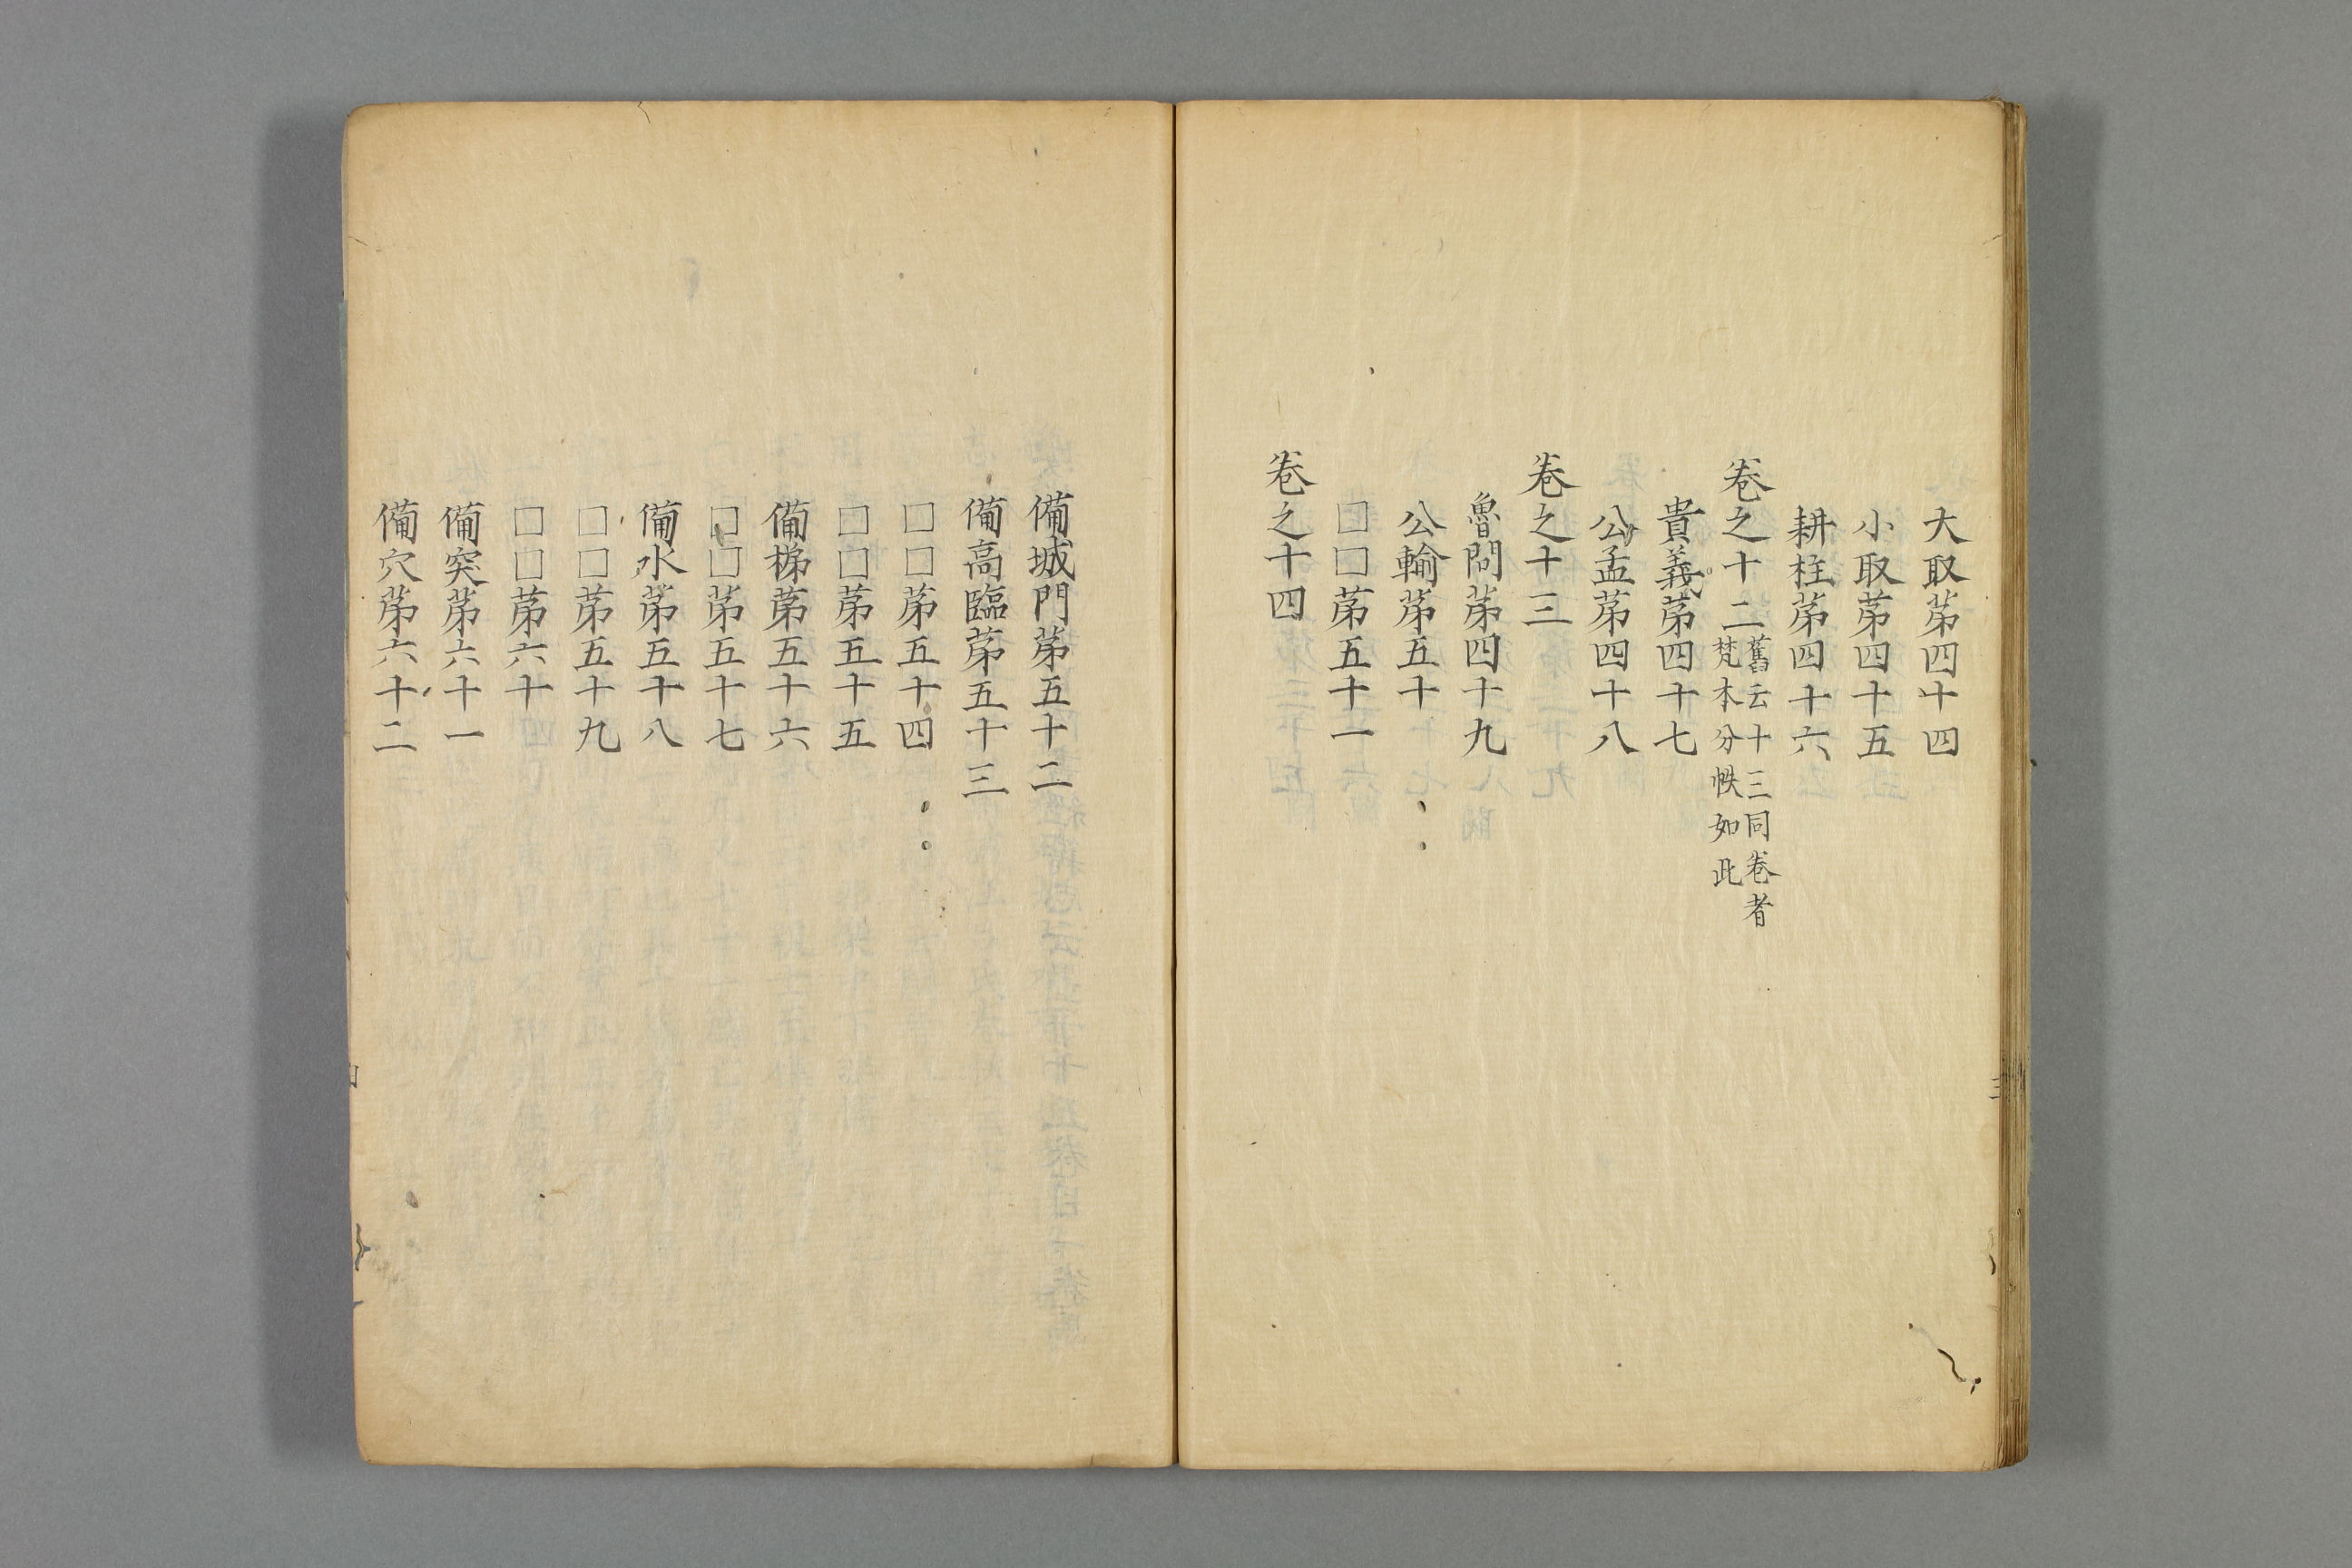 大取苐四十四
小取苐四十五
耕柱苐四十六
卷之十二舊云十三同卷者
梵本分帙如此
貴義苐四十七
公孟苐四十八
卷之十三
魯問苐四十九
公輸苐五十
□□苐五十一
卷之十四
備城門苐五十二
備高臨苐五十三
□□苐五十四
□□苐五十五
備梯苐五十六
□□苐五十七
備水苐五十八
□□苐五十九
□□苐六十
備突苐六十一
備穴苐六十二
三